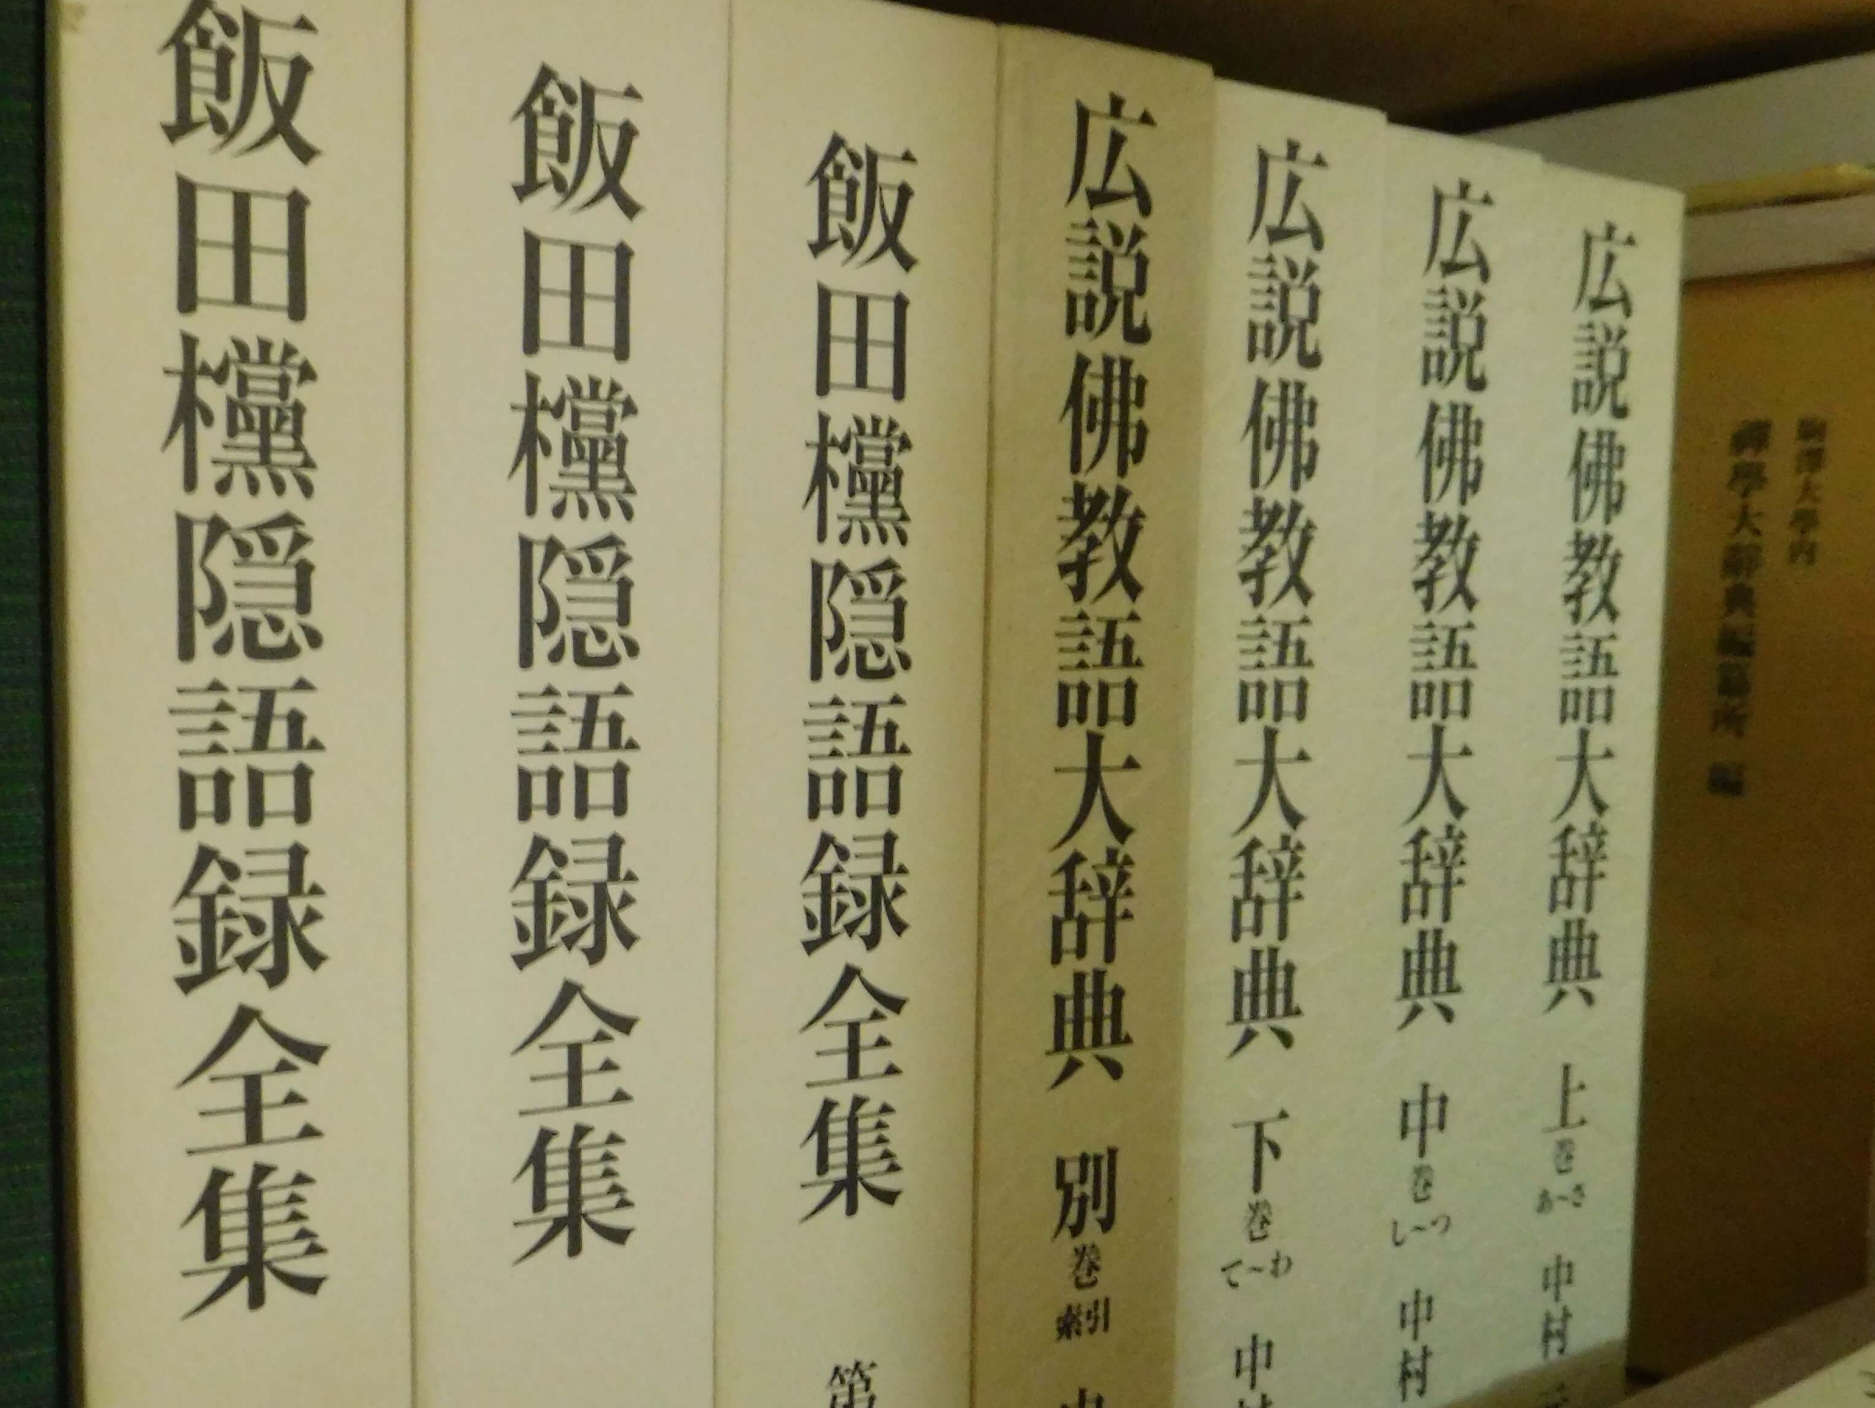 飯田欓隠語録全集
飯田欓隠語録全集
飯田欓隠語録全集 第
広説佛教語大辞典 別巻 索引
広説佛教語大辞典 下巻 て〜わ 中村
広説佛教語大辞典 中巻 し〜つ 中村
広説佛教語大辞典 上巻 あ〜さ 中村 元
駒澤大學内
禪學大辭典編纂所 編